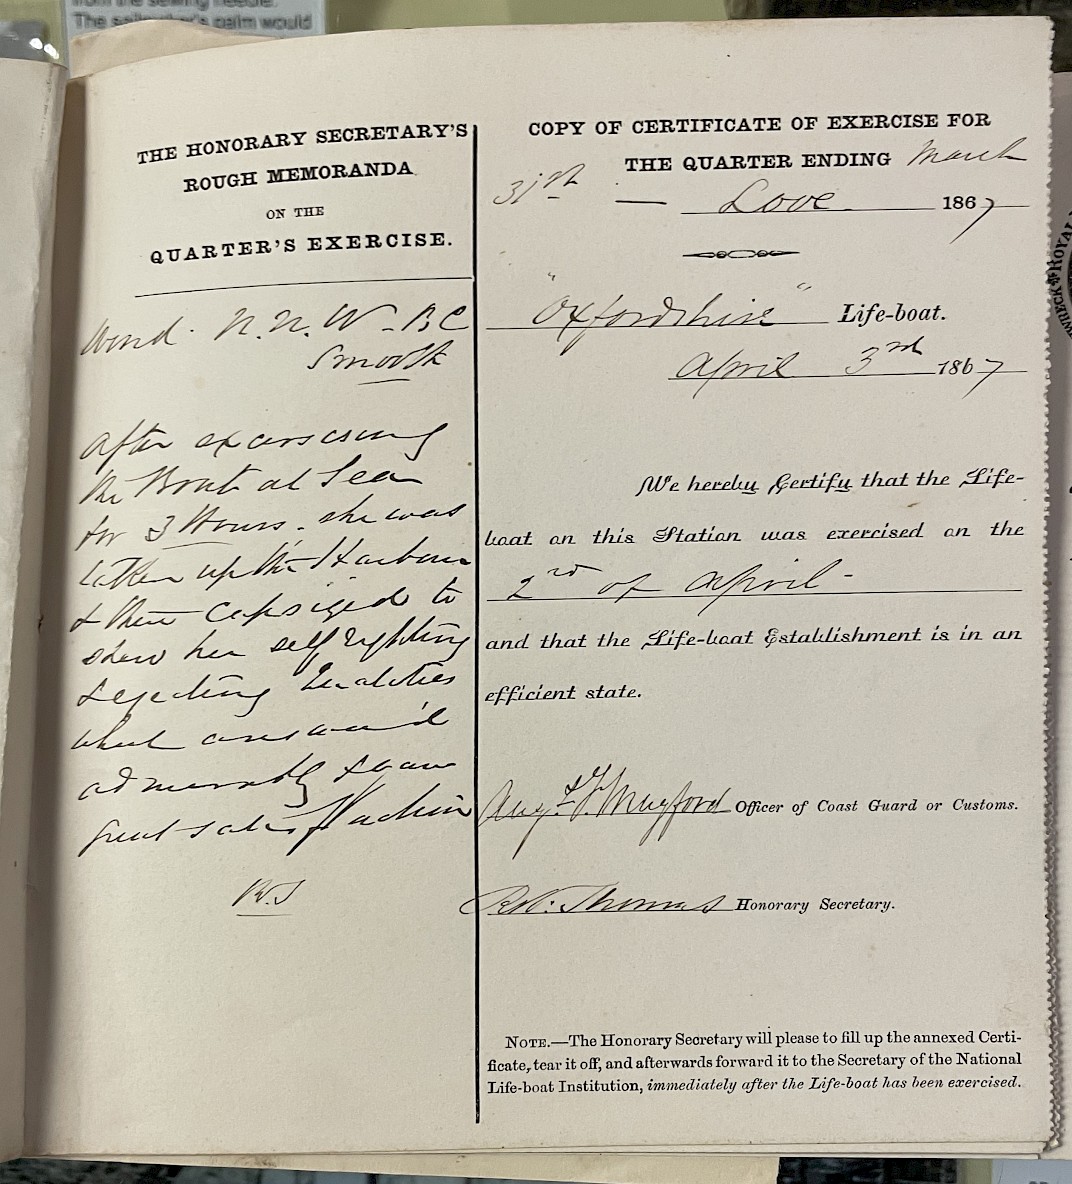 The sailmaker's palm would
THE HONORARY SECRETARY'S
ROUGH MEMORANDA
ON THE
QUARTER'S EXERCISE.
Wind. N.N.W - BC
Smooth
After exercising
the Boat at Sea
for 3 Hours - she was
taken up the Harbour
& then capsized to
shew her self righting
& ejecting Qualities
which answer'd
admirably & gave
great satisfaction
R.T
COPY OF CERTIFICATE OF EXERCISE FOR
THE QUARTER ENDING March
31st — Looe 1867
"Oxfordshire" Life-boat.
April 3rd 1867
We hereby Certify that the Life-
boat on this Station was exercised on the
2nd of April -
and that the Life-boat Establishment is in an
efficient state.
Officer of Coast Guard or Customs.
Robt. Thomas Honorary Secretary.
NOTE.—The Honorary Secretary will please to fill up the annexed Certi-
ficate, tear it off, and afterwards forward it to the Secretary of the National
Life-boat Institution, immediately after the Life-boat has been exercised.